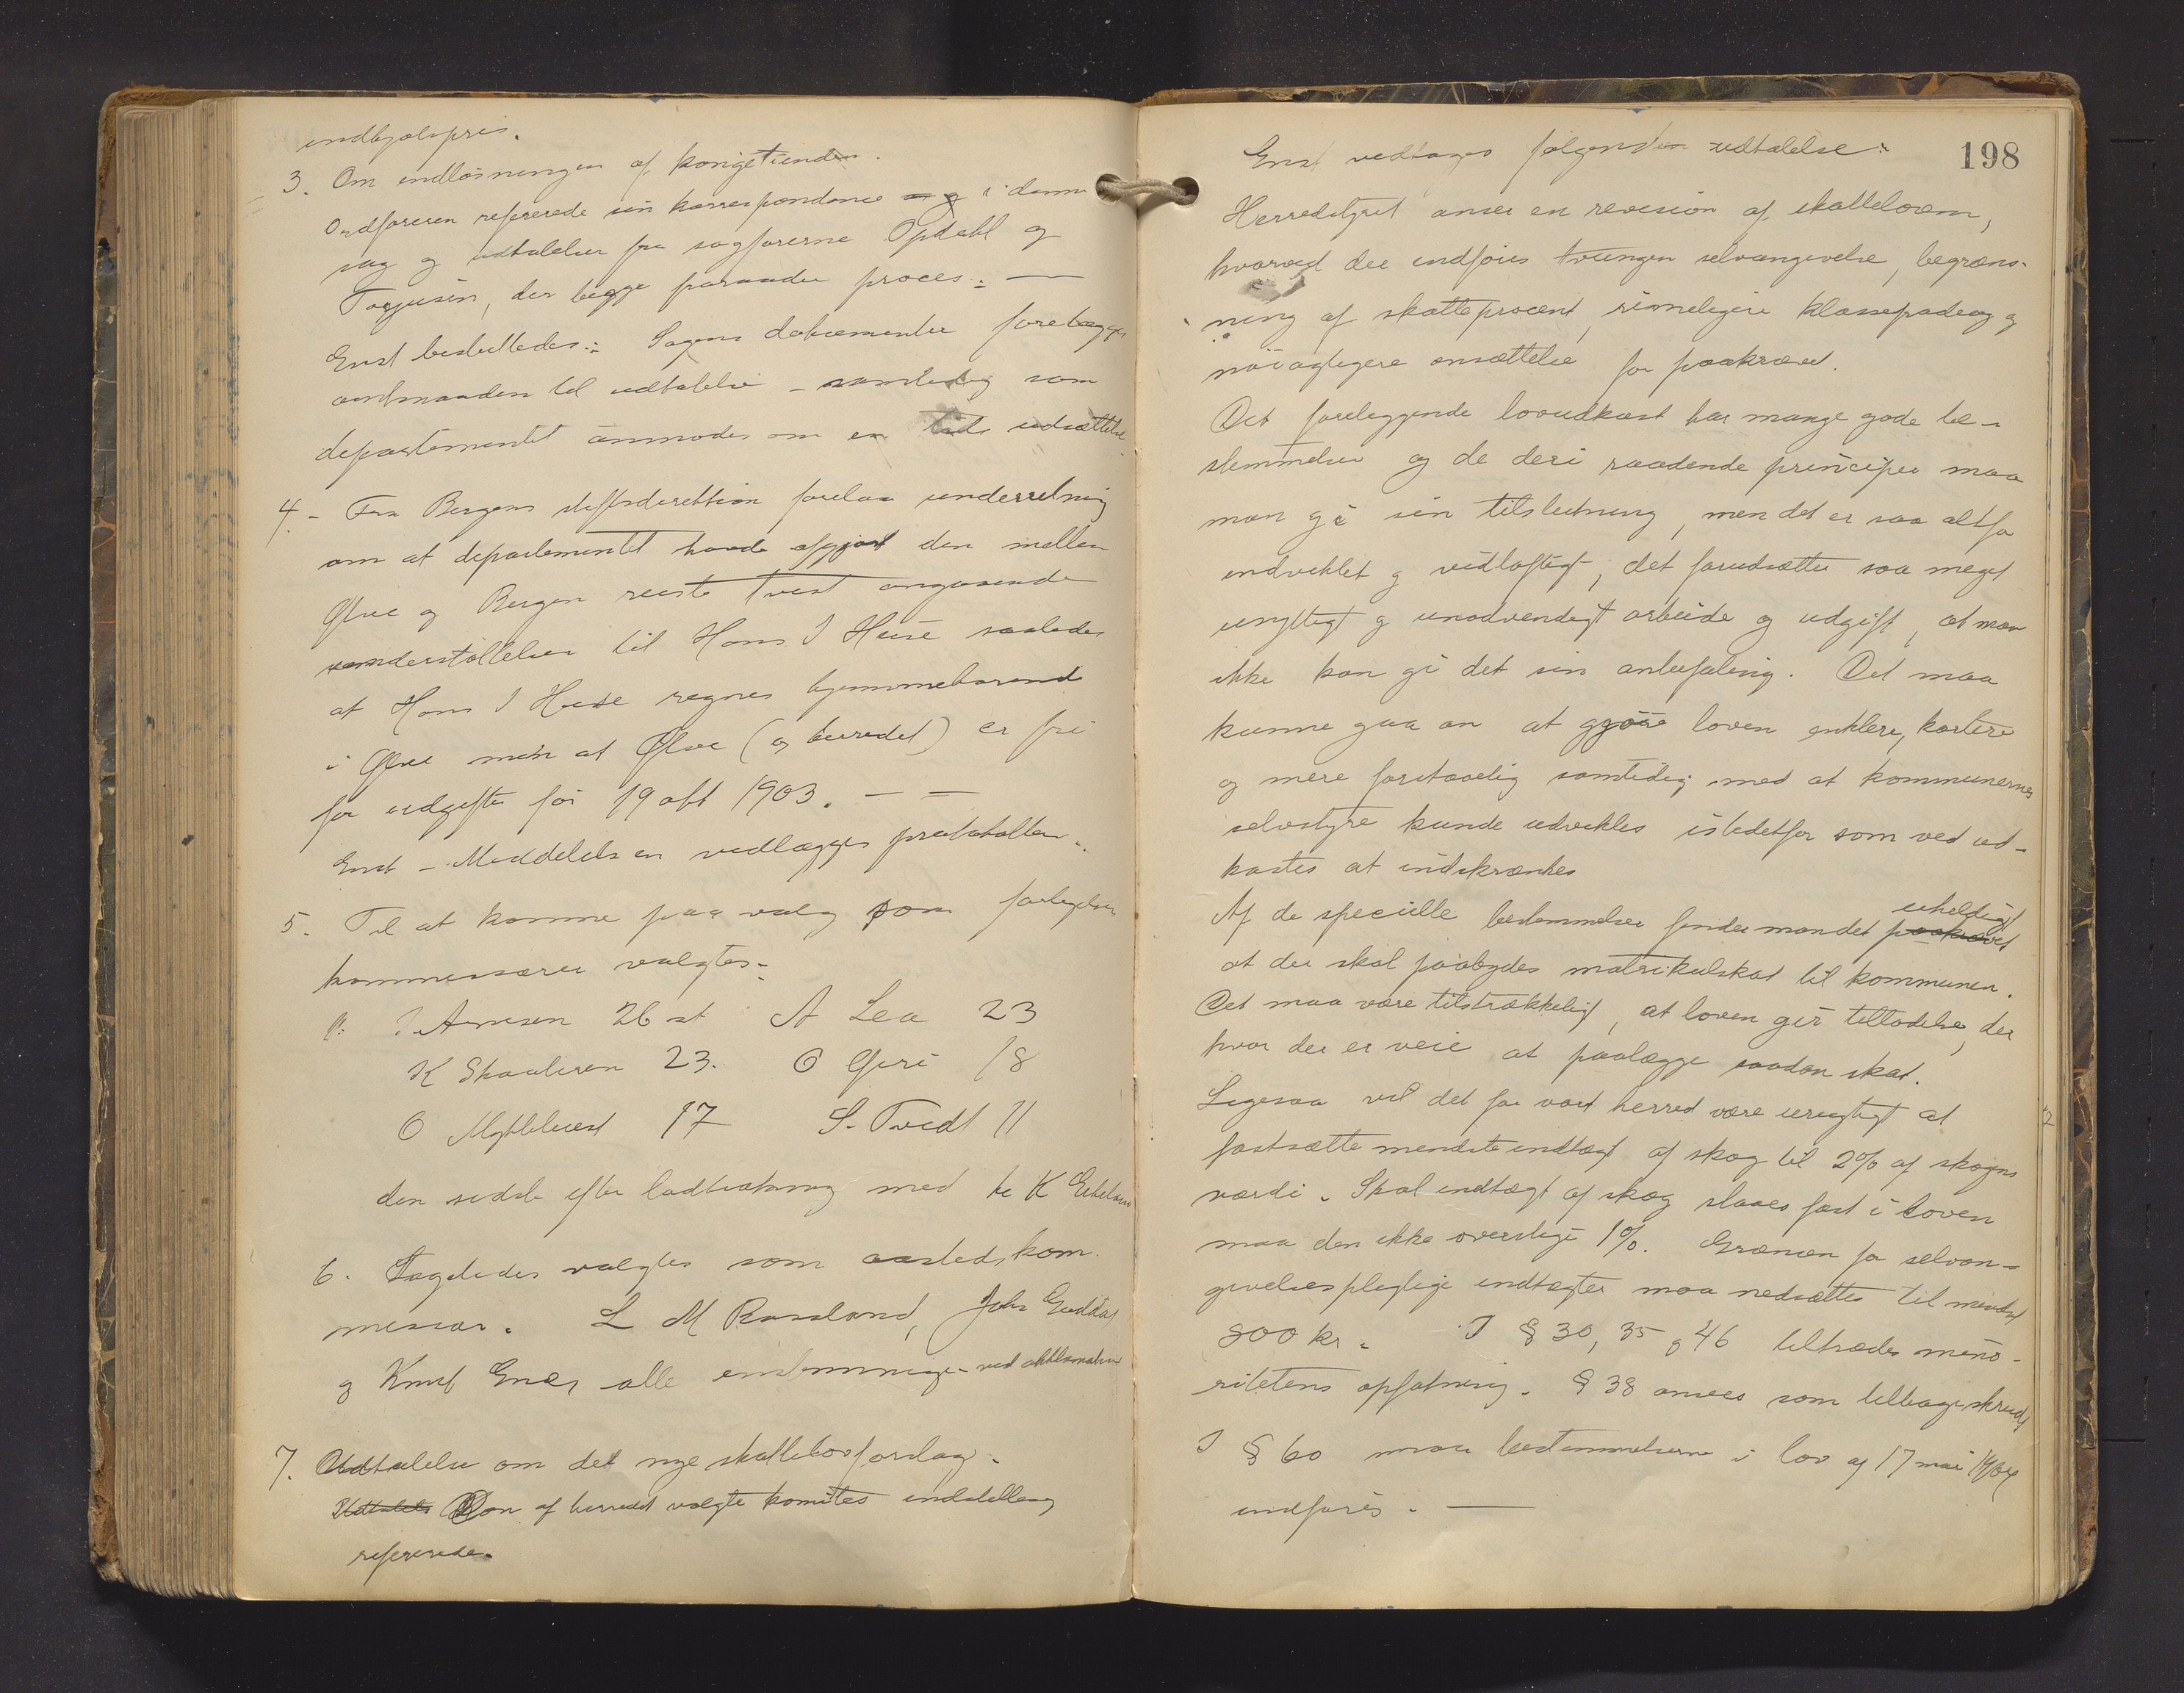 indkjøbspris.
3. Om indløsningen af kongetienden.
Ordføreren refererede sin korrespondance i denne
sag og udtalelser fra sagførerne Opdahl og
Torjusen, der begge fraraader proces. —
Enst besluttedes: Sagens dokumenter forelægges
amtmanden til udtalelse – samtidig som
departementet anmodes om en tids udsættelse
4. – Fra Bergens stiftsdirektion forelaa underretning
om at departementet havde afgjort den mellem
Ølve og Bergen reiste tvist angaaende
understøttelsen til Hans J Heie saaledes
at Hans J Heie regnes hjemmehørende
i Ølve men at Ølve (og herredet) er fri
for udgifter før 19 okt 1903. — —
Enst – Meddelelsen vedlægges protokollen.
5. Til at komme paa valg som forligelses
kommissærer valgtes:
J. Arnesen 26 st A Lea 23
K Skaaleven 23. O Gjere 18
O Myklebust 17 S. Tvedt 11
den sidste efter lodtrækning med K
6. Ligeledes valgtes som aastedskom
missær. L M Røssland, John Guddal
og Knut Enæs alle enstemmige – ved akklamation
7. Udtalelse om det nye skattelovforslag.
Udtalelse Den af herredet valgte komites indstilling
refereredes.
198
Enst vedtages følgende udtalelse:
Herredstyret anser en revision af skatteloven,
hvorved der indføies tvungen selvangivelse, begræns-
ning af skatteprocent, rimeligere klassefradrag og
nøiagtigere ansættelse for paakrævet.
Det foreliggende lovudkast har mange gode be-
stemmelser og de deri raadende principer maa
man gi sin tilslutning, men det er saa altfor
indviklet og vidløftigt; det forudsætter saa meget
unyttigt og unødvendigt arbeide og udgift, at man
ikke kan gi det sin anbefaling. Det maa
kunne gaa an at gjøre loven enklere, kortere
og mere forstaaelig samtidig med at kommunernes
selvstyre kunde udvikles istedetfor som ved ud-
kastet at indskrænkes
Af de specielle bestemmelser finder man det paakrævet uheldigt
at der skal paabydes matrikulskat til kommunen.
Det maa være tilstrækkeligt, at loven gir tilladelse, der
hvor der er veie at paalægge saadan skat.
Ligesaa vil det for vort herred være urigtigt at
fastsætte mindste indtægt af skog til 2% af skogens
værdi. Skal indtægt af skog slaaes fast i loven
maa den ikke overstige 1%. Grænsen for selvan-
givelsespligtige indtægter maa nedsættes til mindst
800 kr. I § 30, 35 og 46 tiltrædes mino-
ritetens opfatning. § 38 ansees som tilbageskridt
I § 60 maa bestemmelserne i lov af 17 mai 1904
indføres. —